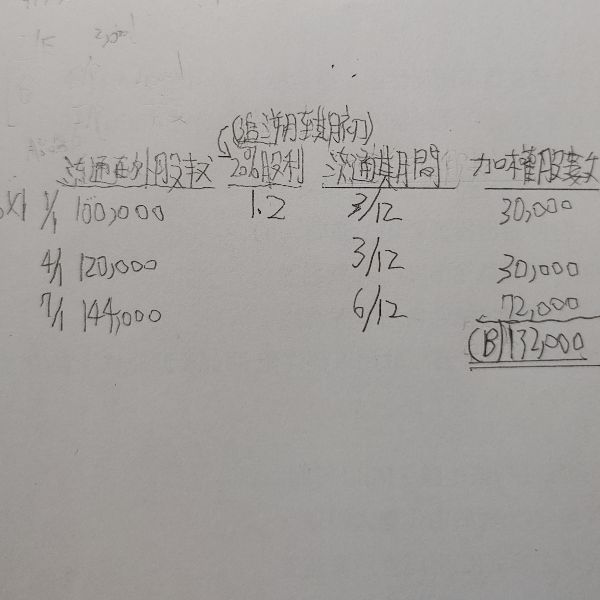 (追溯用至期初)
流通在外股数 20%股利 流通期間 加權股數
1/1 100,000 1.2 3/12 30,000
4/1 120,000 3/12 30,000
7/1 144,000 6/12 72,000
(B) 132,000